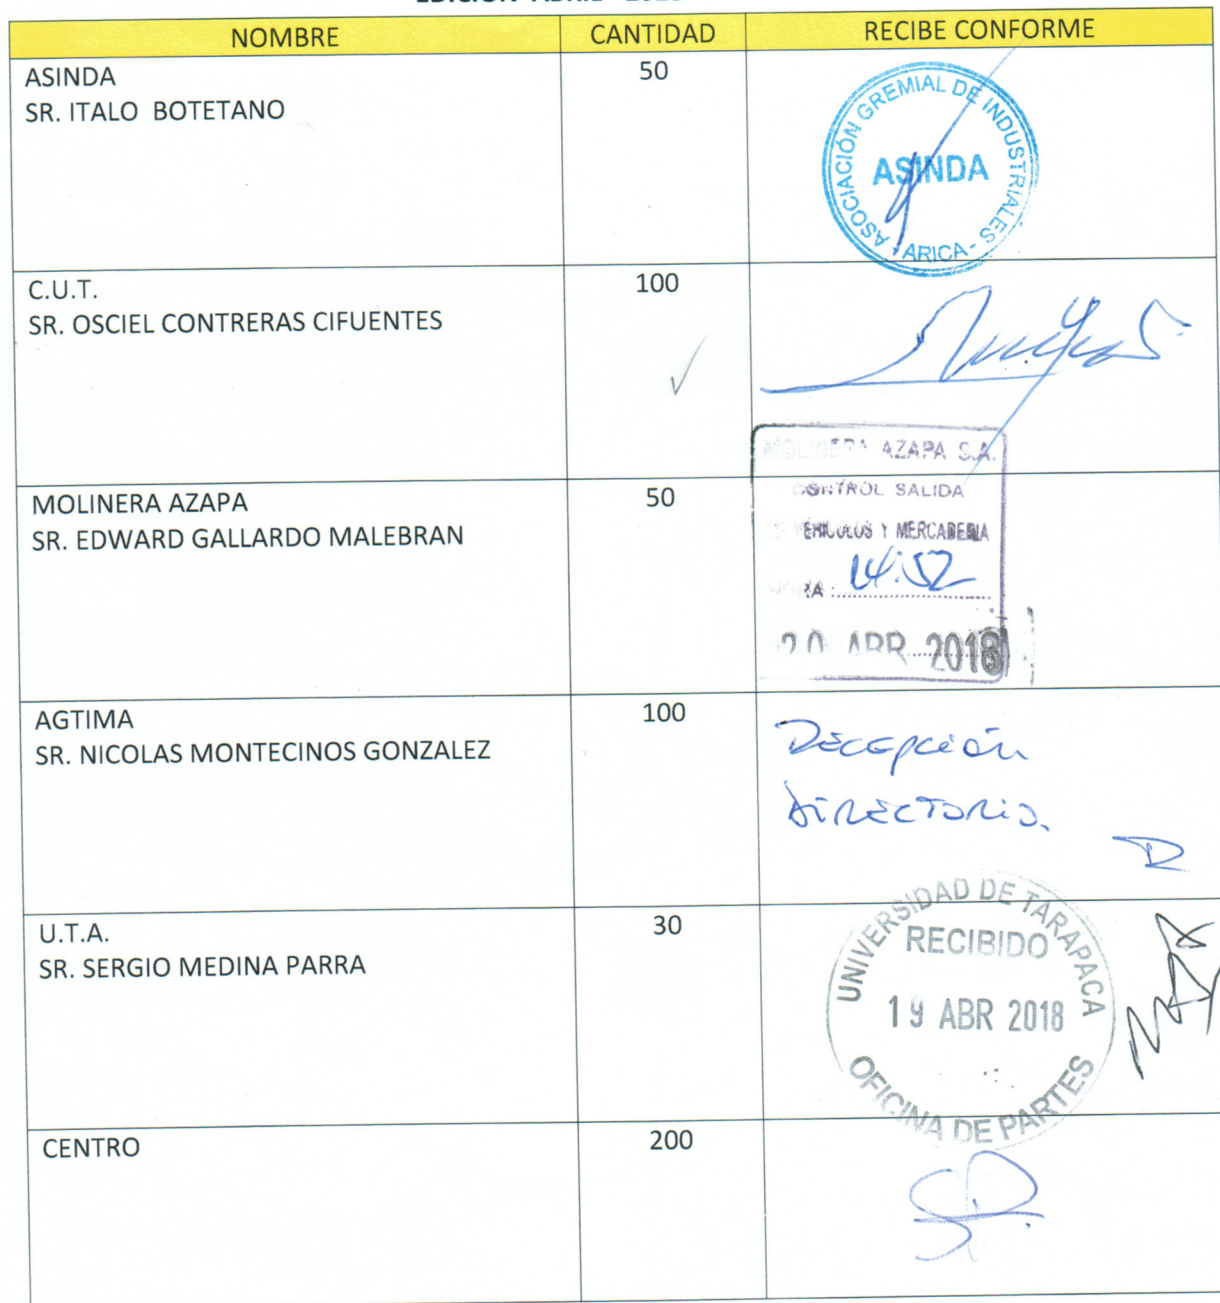 NOMBRE CANTIDAD RECIBE CONFORME
ASINDA 50
SR. ITALO BOTETANO
ASOCIACIÓN GREMIAL DE INDUSTRIALES
ASINDA
- ARICA -
C.U.T. 100
SR. OSCIEL CONTRERAS CIFUENTES
MOLINERA AZAPA S.A.
CONTROL SALIDA
MOLINERA AZAPA 50
SR. EDWARD GALLARDO MALEBRAN
VEHICULOS Y MERCADERIA
HORA : 14:52
20 ABR 2018
AGTIMA 100
SR. NICOLAS MONTECINOS GONZALEZ
Recepción
Directorio.
U.T.A. 30
SR. SERGIO MEDINA PARRA
UNIVERSIDAD DE TARAPACA
RECIBIDO
19 ABR 2018
OFICINA DE PARTES
CENTRO 200